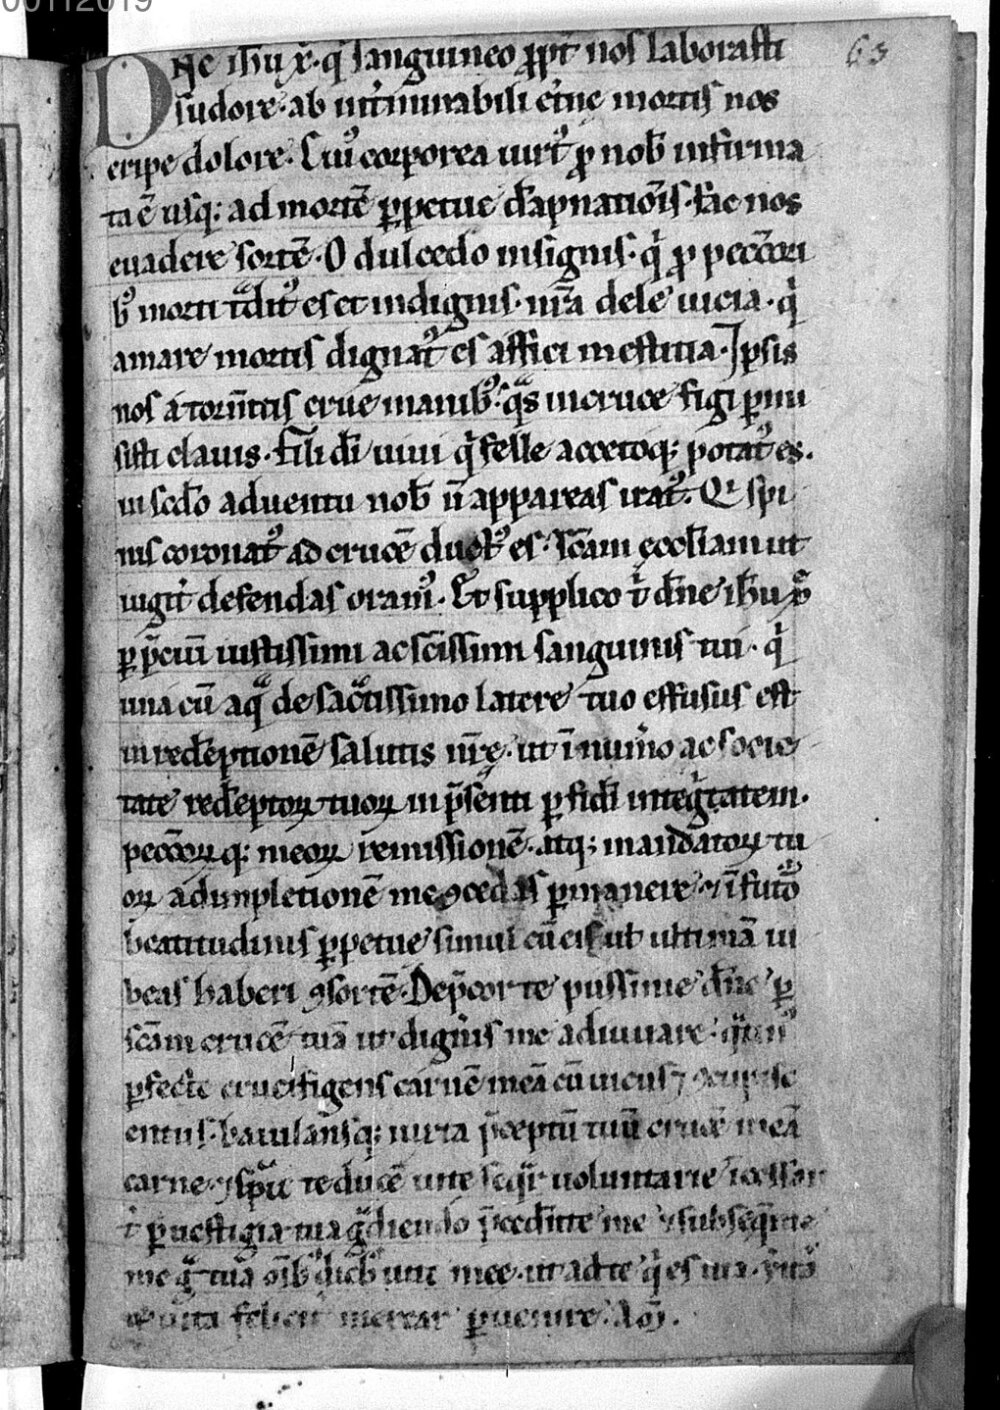 00112019
63
Dn̄e ih̄u xp̄. q̇ sanguineo ꝓpt̄ nos laborasti
sudore. ab int̄minabili et̄ne mortis nos
eripe dolore. Cui᷒ corporea uirt᷒ ꝓ nob̄ infirma
ta ē usq; ad mortē ꝑpetue dāpnatiōis. fac nos
euadere sortē. O dulcedo insignis. q̇ ꝓ peccōri
b᷒ morti t̄dit᷒ es et indignis. nr̄a dele uicia. q̇
amare mortis dignat᷒ es affici mestitia. Ipsis
nos a torm̄tis erue manib᷒. qͣs in cruce figi ꝑmi
sisti clauis. fili dī uiui q̇ felle acetoq; potat᷒ es.
in sc̄do aduentu nob̄ n̄ appareas irat᷒. Qi spi
nis coronat᷒ ad crucē duct᷒ es. sc̄am ęccl̄iam ut
iugit̄ defendas oram᷒. Et supplico t̄ dn̄e ih̄u xp̄
ꝑ p̄ciū iustissimi ac sc̄issimi sanguinis tui. q̇
una cū aqͣ de sac̄tissimo latere tuo effusus est
in redēptionē salutis nr̄ę. ut ī num̄o ac socie
tate redēptoꝝ tuoꝝ in p̄senti ꝑ fidī integͥtatem.
peccōꝝ q; meoꝝ remissionē. atq; mandatoꝝ tu
oꝝ adimpletionē me ꝯcedas ꝑmanere. ⁊ ī futūo
beatitudinis ꝑpetue simul cū eis ut ultimā iu
beas haberi ꝯsortē. Dep̄cor te piissime dn̄e ꝑ
sc̄am crucē tuā ut digneris me adiuuare.
ꝑfecte crucifigens carnē meā cū uiciis ⁊ ꝯcupisc
entiis. baiulansq; iuxta p̄ceptū tuū crucē meā
carne. ⁊ spū te ducē uite seqͥ uoluntarie
t̄ ꝑ uestigia tua gͣdiendo p̄cedēte me ⁊ subseqn̄te
me gͣ tuā oīb᷒ dieb᷒ uite mee. ut ad te q̇ es uia. uita
uita felicit̄ merear ꝑuenire. Am̄.